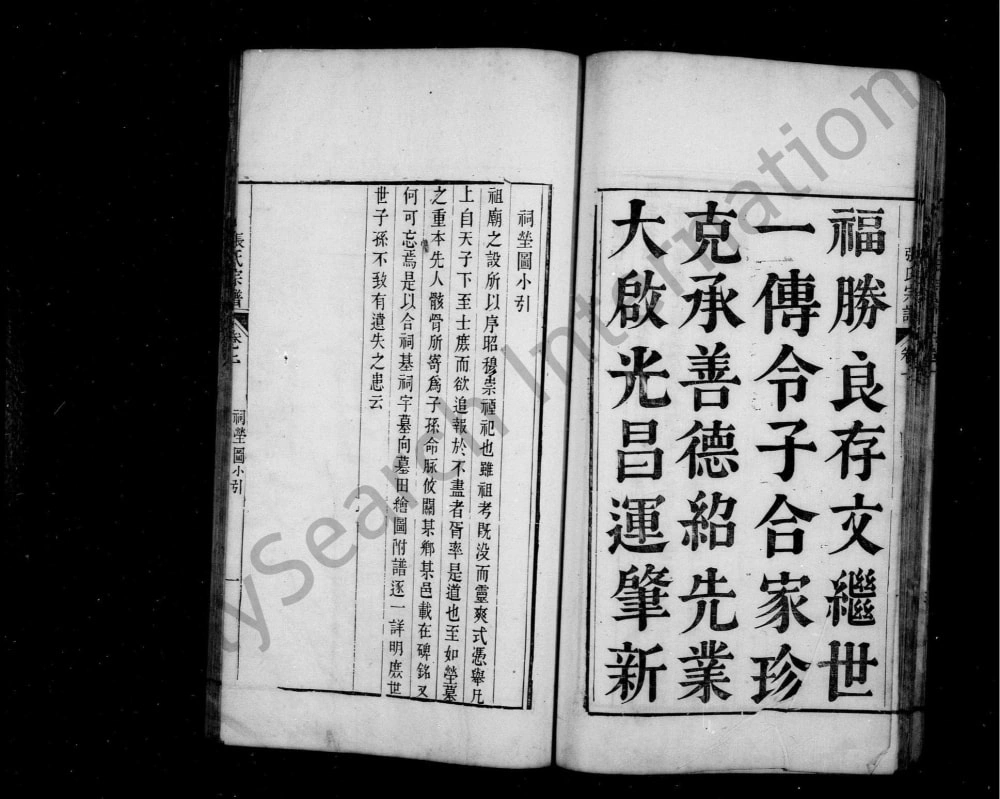 福勝良存文繼世
一傳令子合家珍
克承善德紹先業
大啟光昌運肇新
張氏宗譜
卷一
祠塋圖小引
祖廟之設所以序昭穆崇禋祀也雖祖考既沒而靈爽式憑舉凡
上自天子下至士庶而欲追報於不盡者胥率是道也至如塋墓
之重本先人骸骨所寄爲子孫命脈攸關某鄉某邑載在碑銘又
何可忘焉是以合祠基祠宇墓向墓田繪圖附譜逐一詳明庶世
世子孫不致有遺失之患云
張氏宗譜
卷之二
祠塋圖小引
一
tySearch Internation